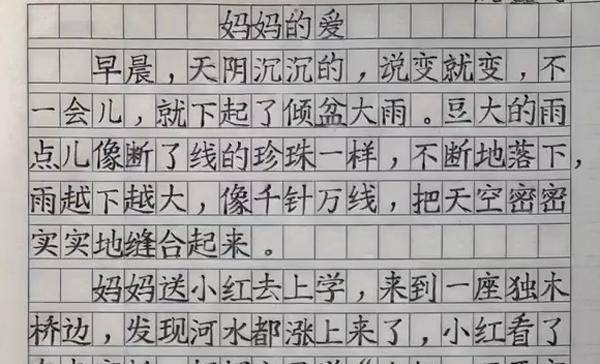 妈妈的爱
早晨，天阴沉沉的，说变就变，不
一会儿，就下起了倾盆大雨。豆大的雨
点儿像断了线的珍珠一样，不断地落下，
雨越下越大，像千针万线，把天空密密
实实地缝合起来。
妈妈送小红去上学，来到一座独木
桥边，发现河水都涨上来了，小红看了